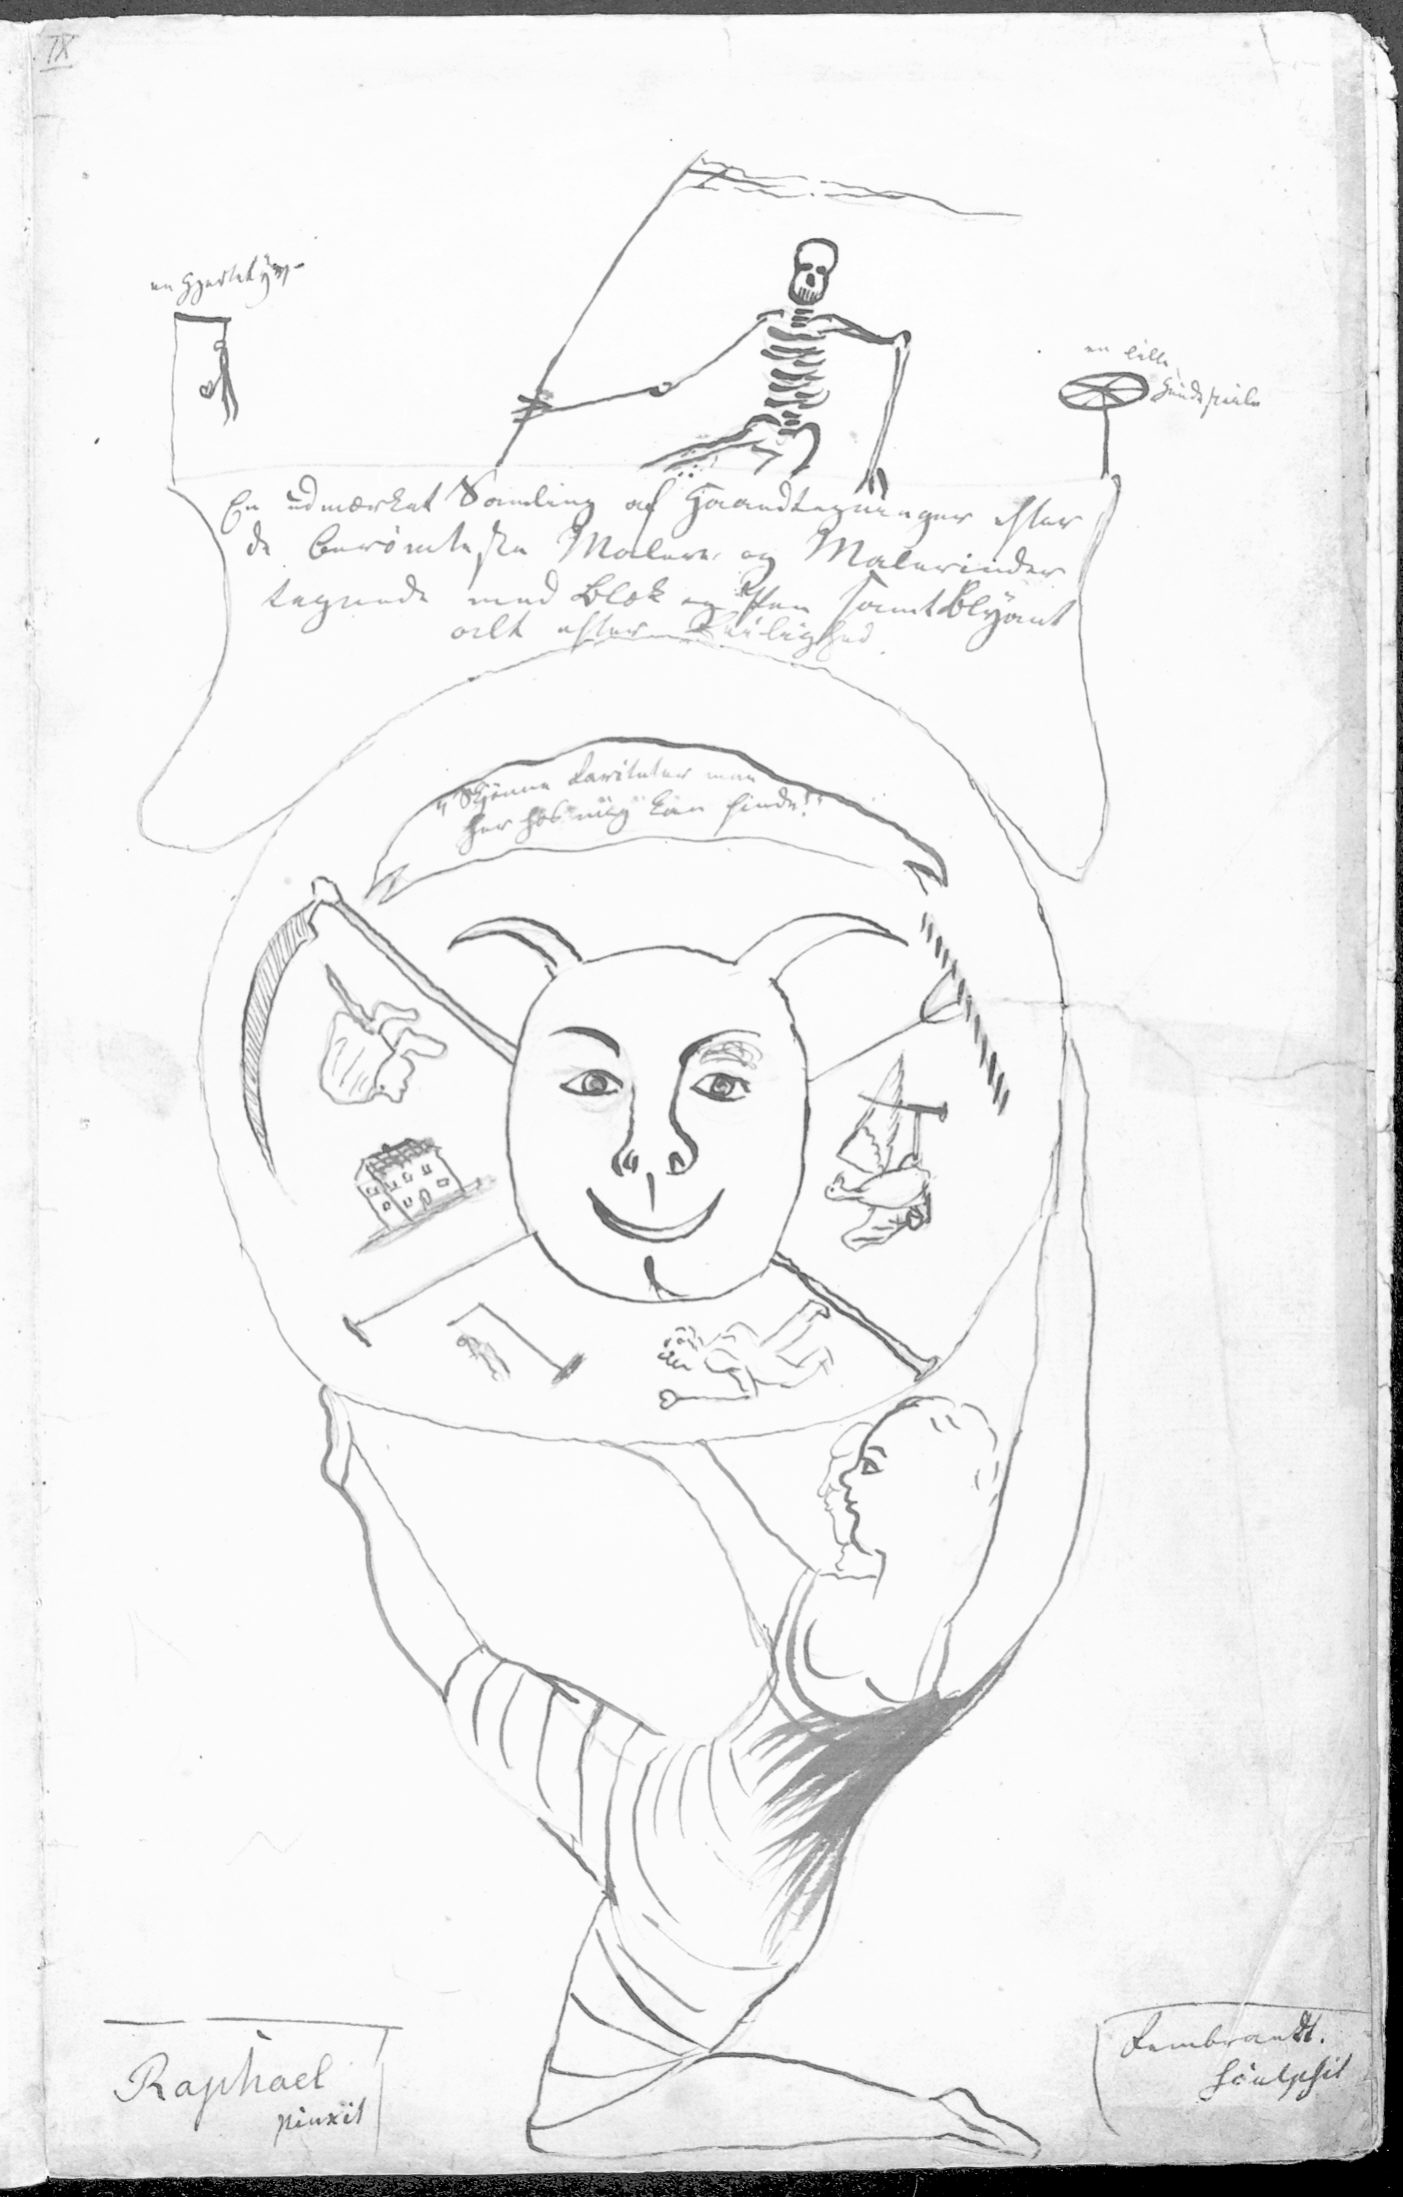 IX
en Hjertetyv
en lille
En udmærket Samling af Haandtegninger efter
de berömteste Malere og Malerinder
tegnede med Blæk og Pen samt Blyant
alt efter Leilighed.
"Skjönne Rariteter man
her hos mig kan finde!"
Raphael
pinxit
Rembrandt.
sculpsit